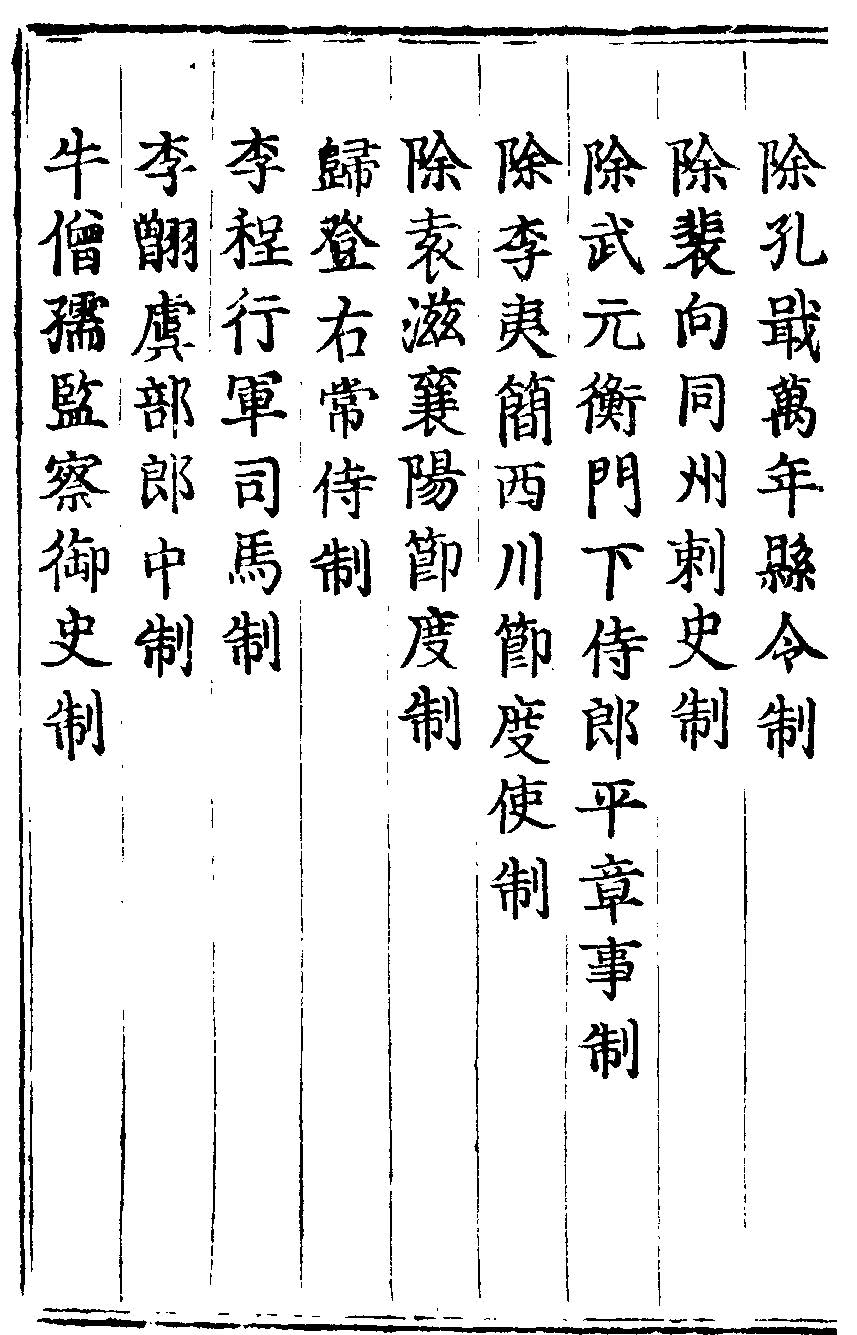 除孔戢萬年縣令制
除裴向同州刺史制
除武元衡門下侍郎平章事制
除李夷簡西川節度使制
除袁滋襄陽節度制
歸登右常侍制
李程行軍司馬制
李翺虞部郎中制
牛僧孺監察御史制